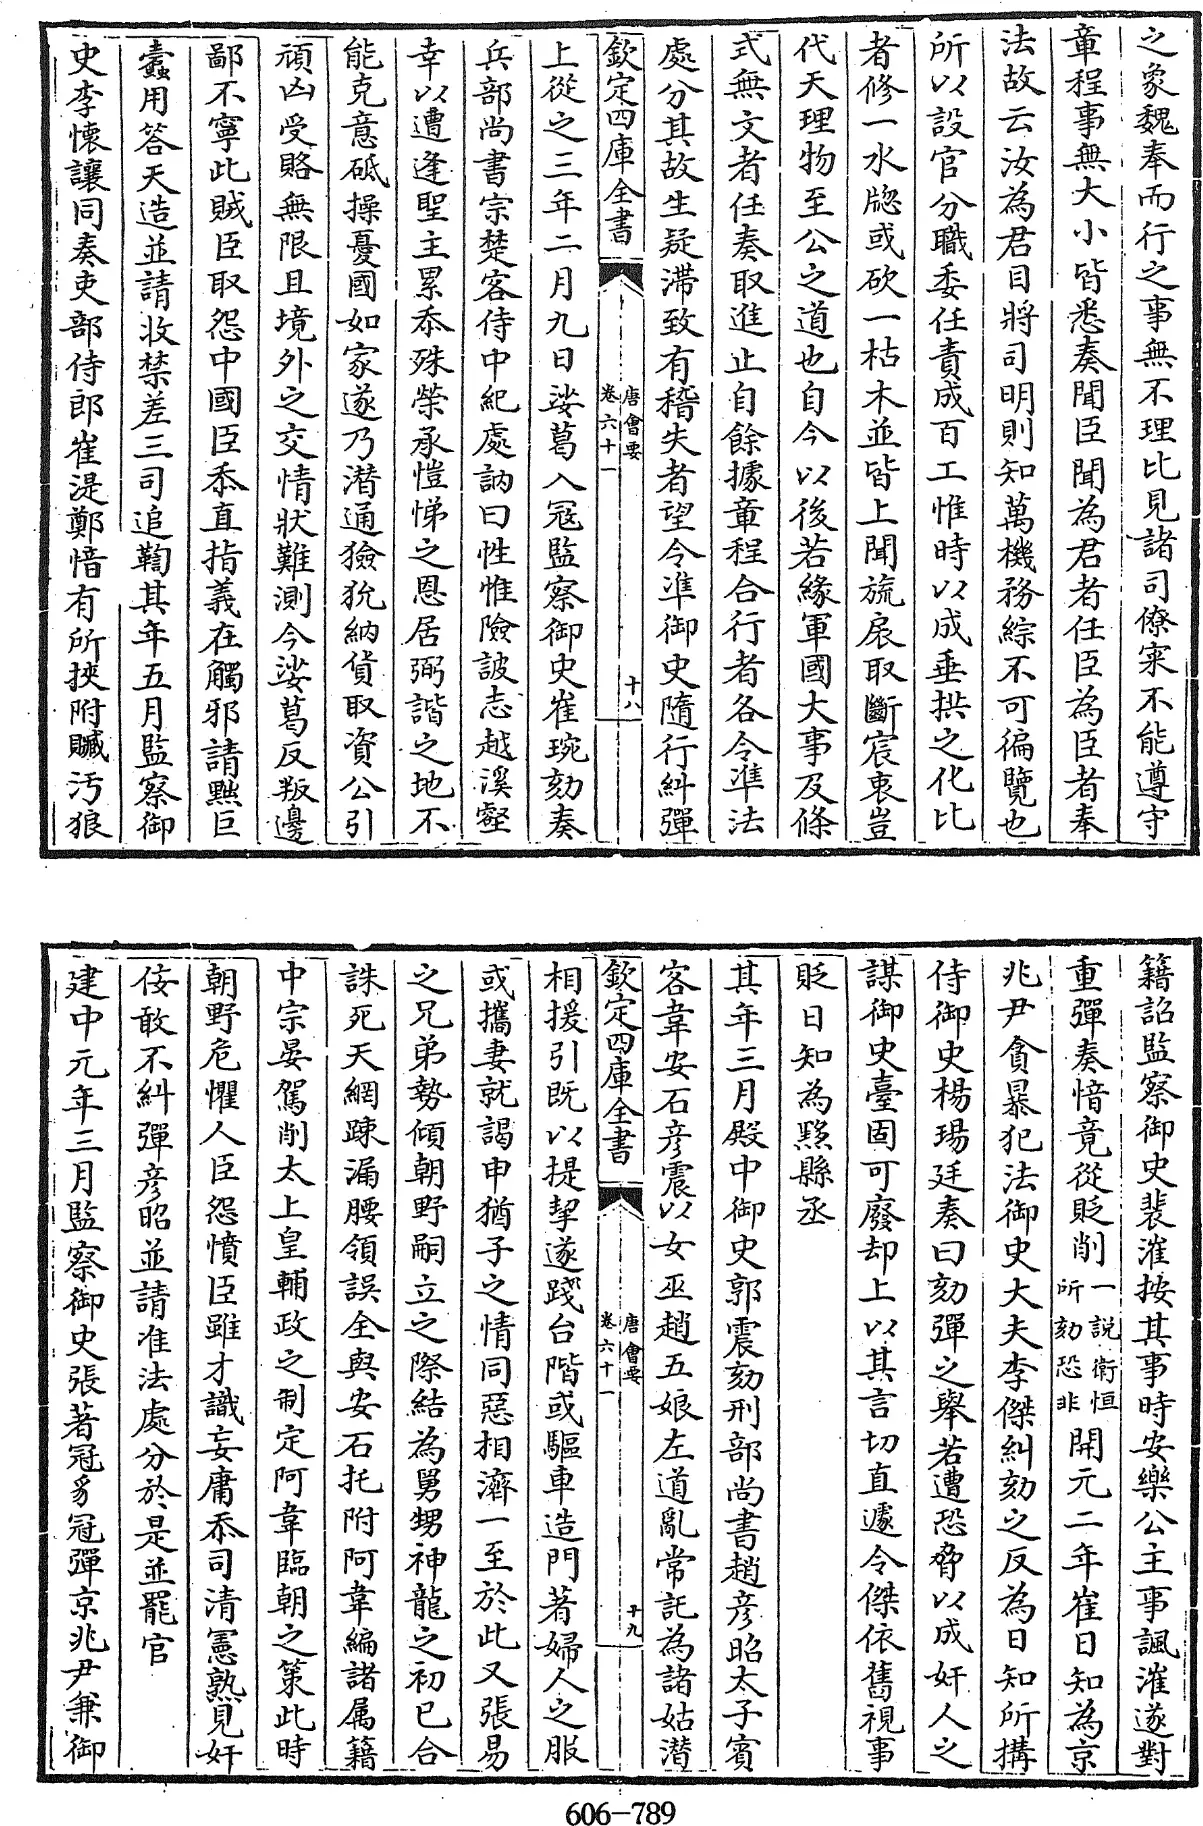 之象魏奉而行之事無不理比見諸司僚寀不能遵守
章程事無大小皆悉奏聞臣聞為君者任臣為臣者奉
法故云汝為君目將司明則知萬機務綜不可徧覽也
所以設官分職委任責成百工惟時以成垂拱之化比
者修一水牕或砍一枯木並皆上聞旒扆取斷宸衷豈
代天理物至公之道也自今以後若緣軍國大事及條
式無文者任奏取進止自餘據章程合行者各令準法
處分其故生疑滯致有稽失者望令準御史隨行糾彈
欽定四庫全書
唐會要
卷六十一
十八
上從之三年二月九日娑葛入冦監察御史崔琬劾奏
兵部尚書宗楚客侍中紀處訥曰性惟險詖志越溪壑
幸以遭逢聖主累忝殊榮承愷悌之恩居弼諧之地不
能克意砥操憂國如家遂乃潜通獫狁納貨取資公引
頑凶受賂無限且境外之交情狀難測今娑葛反叛邊
鄙不寧此賊臣取怨中國臣忝直指義在觸邪請黜巨
蠹用答天造並請收禁差三司追鞫其年五月監察御
史李懷讓同奏吏部侍郎崔湜鄭愔有所挾附贓汚狼
籍詔監察御史裴漼按其事時安樂公主事諷漼遂對
重彈奏愔竟從貶削一說衛恒所劾恐非開元二年崔日知為京
兆尹貪暴犯法御史大夫李傑糾劾之反為日知所搆
侍御史楊瑒廷奏曰劾彈之舉若遭恐脅以成奸人之
謀御史臺固可廢却上以其言切直遽令傑依舊視事
貶日知為黟縣丞
其年三月殿中御史郭震劾刑部尚書趙彦昭太子賓
客韋安石彦震以女巫趙五娘左道亂常託為諸姑潜
欽定四庫全書
唐會要
卷六十一
十九
相援引既以提挈遂踐台階或驅車造門著婦人之服
或攜妻就謁申猶子之情同惡相濟一至於此又張易
之兄弟勢傾朝野嗣立之際結為舅甥神龍之初已合
誅死天網踈漏腰領誤全與安石托附阿韋編諸属籍
中宗晏駕削太上皇輔政之制定阿韋臨朝之策此時
朝野危懼人臣怨憤臣雖才識妄庸忝司清憲熟見奸
佞敢不糾彈彦昭並請准法處分於是並罷官
建中元年三月監察御史張著冠豸冠彈京兆尹兼御
606-789